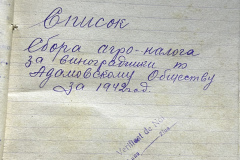 Список
Сбора агро-налога
за виноградники по
Адамовскому Обществу
за 1942 год.
Verificat de Noi